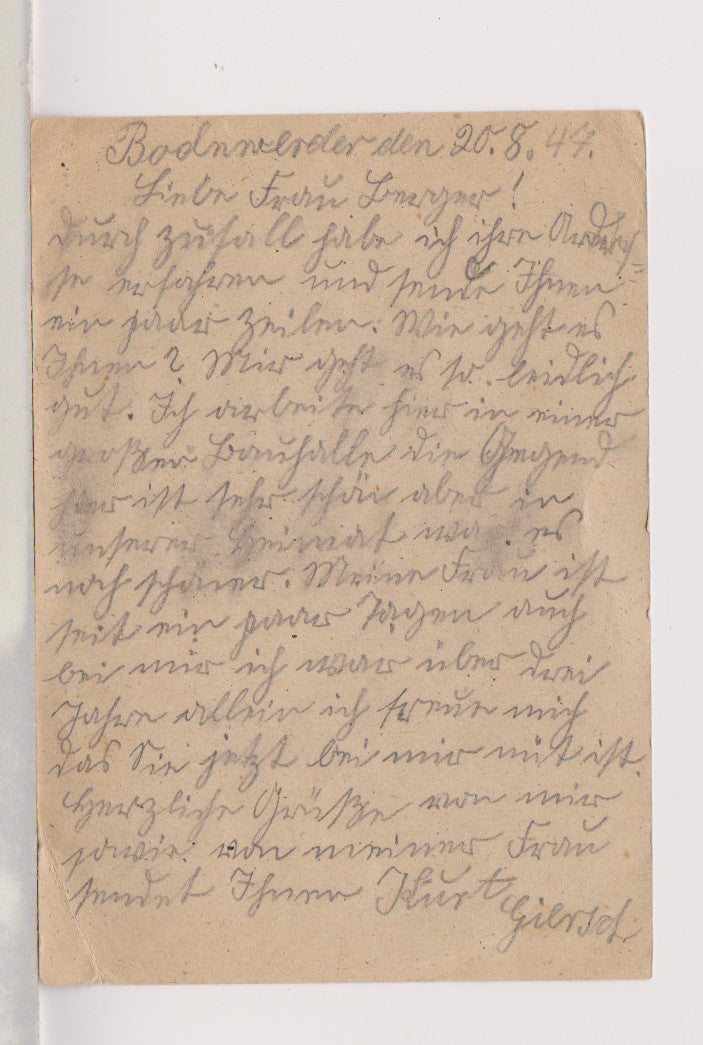 Bodenwerder den 20.8.47.
Liebe Frau Berger!
durch zufall habe ich ihre
se erfahren und sende Ihnen
ein paar zeilen. Wie geht es
Ihnen? Mir geht es so leidlich
gut. Ich arbeite hier in einer
großen die Gegend
hier ist sehr schön aber in
unserer Heimat war es
noch schöner. Meine Frau ist
seit ein paar Tagen auch
bei mir ich war über drei
Jahre allein ich freue mich
das Sie jetzt bei mir mit ist.
Herzliche Grüße von mir
sowie von meiner Frau
sendet Ihnen Kurt